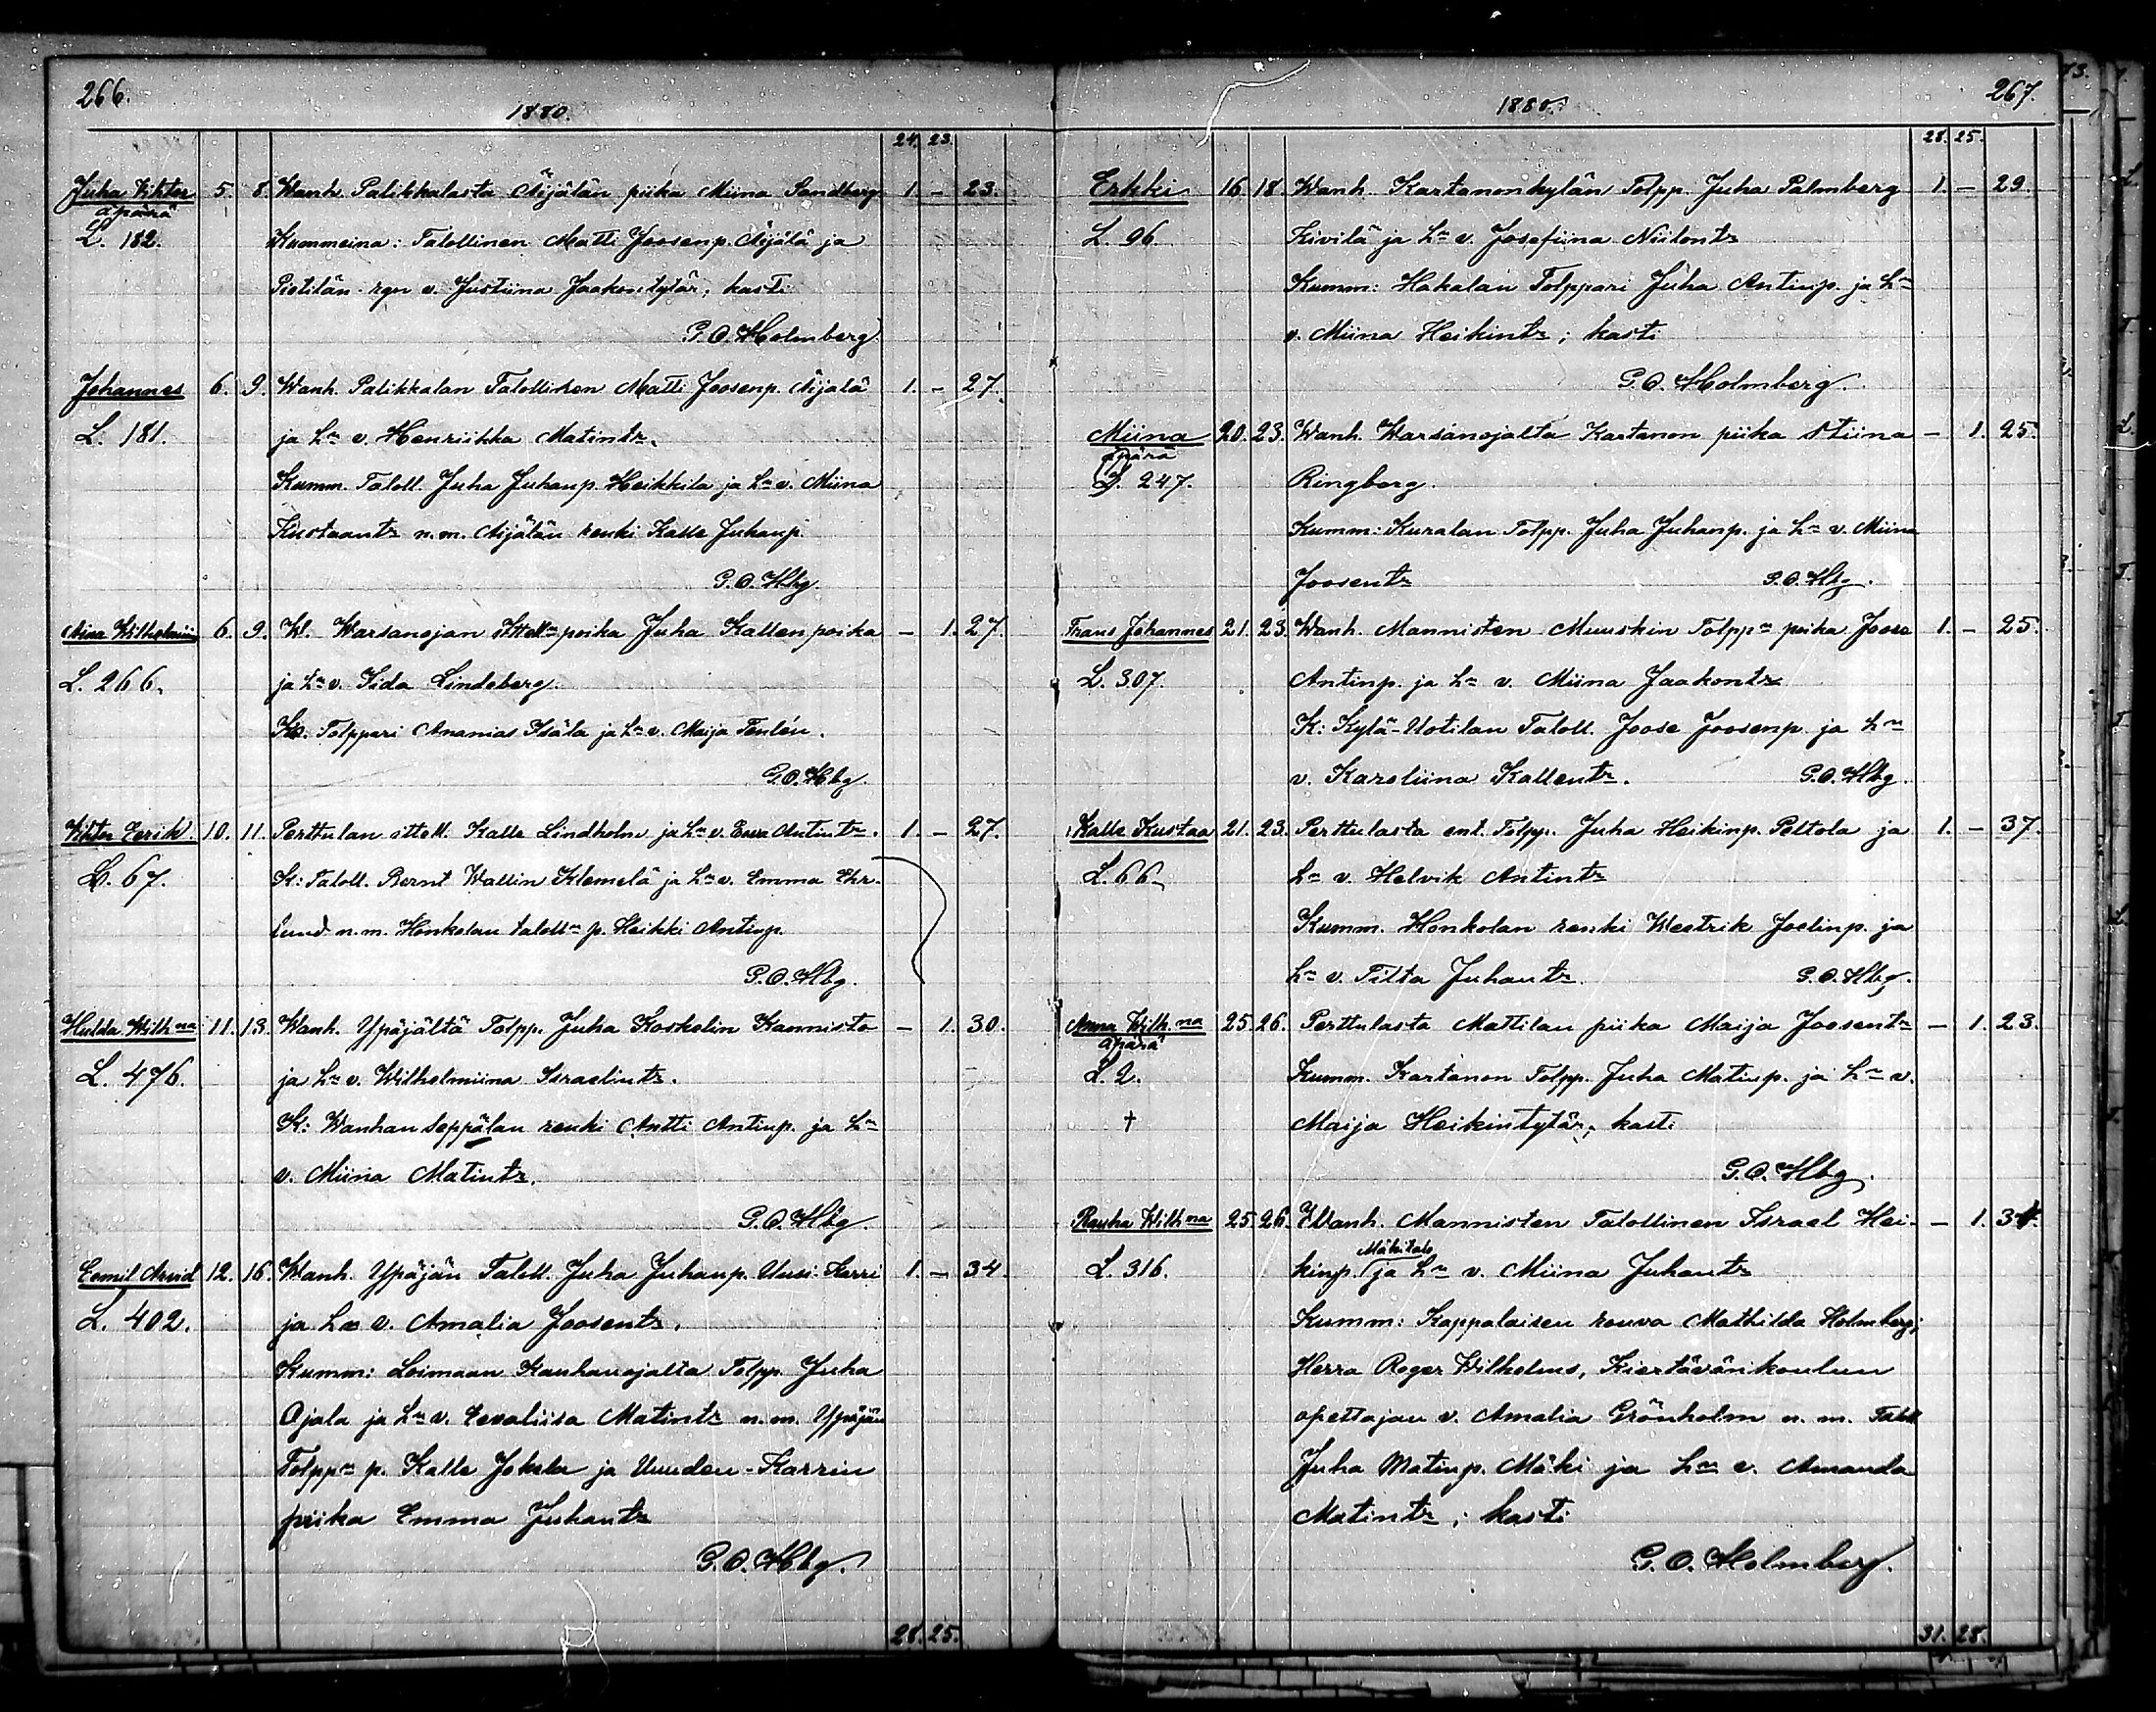 266.
1880.
24. 23.
Juha Wihtor 5. 8. Wanh. Palikkalasta Äijälän piika Miina Sandberg 1. - 23.
äpärä
L. 182. Kummeina: Talollinen Matti Joosenp. Äijälä ja
Pietilän rgn v. Justiina Jaakontytär, kasti
G.O. Holmberg
Johannes 6. 9. Wanh. Palikkalan Talollisen Matti Joosenp. Äijälä 1. - 27.
L. 181. ja hn v. Henriikka Matintr.
Kumm. Taloll. Juha Juhanp. Heikkila ja hn v. Miina
Kustaantr n.m. Äijälän renki Kalle Juhanp.
G.O. Hbg.
Aina Wilhelmiina 6. 9. Wl. Warsanojan Ittelln poika Juha Kallenpoika - 1. 27.
L. 266. ja hn v. Iida Lindeberg.
K: Tolppari Ananias Isäla ja hn v. Maija Tenlén.
G.O. Hbg.
Wihtor Eerik. 10. 11. Perttulan ittell. Kalle Lindholm ja hn v. Ewa Antintr. 1. - 27.
L. 67. K: Taloll. Bernt Wallin Klemelä ja hn v. Emma Ehr-
lund n.m. Honkolan talolln p. Heikki Antinp.
G.O. Hbg.
Hulda Wilhna 11. 13. Wanh. Ypäjältä Tolpp. Juha Koskelin Kannisto - 1. 30.
L. 476. ja hn v. Wilhelmiina Israelintr.
K: Wanhan Seppälän renki Antti Antinp. ja hn
v. Miina Matintr.
G.O. Hbg.
Eemil Arvid 12. 16. Wanh. Ypäjän Taloll. Juha Juhanp. Uusi-Karri 1. - 34.
L. 402. ja hn v. Amalia Joosentr.
Kumm: Loimaan Kauhanojalta Tolpp. Juha
Ojala ja hn v. Eevaliisa Matintr n.m. Ypäjän
Tolppn p. Kalle Jokela ja Uuden-Karrin
piika Emma Juhantr
G.O. Hbg.
28. 25.
267.
1880.
28. 25.
Erkki 16. 18. Wanh. Kartanonkylän Tolpp. Juha Palmberg 1. - 29.
L. 96 Kivilä ja hn v. Josefiina Niilontr
Kumm: Hakalan Tolppari Juha Antinp. ja hn
v. Miina Heikintr; kasti
G.O. Holmberg.
Miina 20. 23. Wanh. Warsanojalta Kartanon piika Stiina - 1. 25.
äpärä
L. 247. Ringberg.
Kumm: Kuralan Tolpp. Juha Juhanp. ja hn v. Miina
Joosentr G.O. Hbg.
Frans Johannes 21. 23. Wanh. Mannisten Muuskin Tolppn poika Joose 1. - 25.
L. 307. Antinp. ja hn v. Miina Jaakontr
K: Kylä-Uotilan Taloll. Joose Joosenp. ja hn
v. Karoliina Kallentr. G.O. Hbg.
Kalle Kustaa 21. 23. Perttulasta ent. Tolpp. Juha Heikinp. Peltola ja 1. - 37.
L. 66. hn v. Helvik Antintr
Kumm. Honkolan renki Westrik Joelinp. ja
hn v. Tilta Juhantr. G.O. Hbg.
Anna Wilh.na 25. 26. Perttulasta Mattilan piika Maija Joosentr - 1. 23.
äpärä
L. 2. Kumm. Kartanon Tolpp. Juha Matinp. ja hn v.
† Maija Heikintytär; kasti
G.O. Hbg.
Rauha Wilhna 25. 26. Wanh. Mannisten Talollinen Israel Hei- - 1. 34.
Mäkitalo
L. 316. kinp. ja hn v. Miina Juhantr
Kumm: Kappalaisen rouva Mathilda Holmberg;
Herra Roger Wilhelms, Kiertävänkoulun
opettajan v. Amalia Grönholm n.m. Taloll
Juha Matinp. Mäki ja hn v. Amanda
Matintr; kasti
G.O. Holmberg.
31. 28.